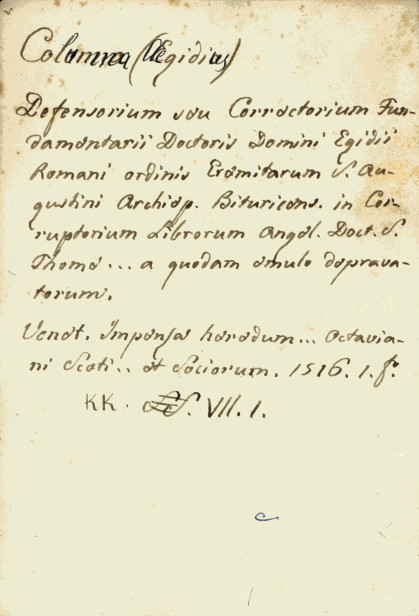 Columna (Ægidius)
Defensorium seu Correctorium Fun-
damentarii Doctoris Domini Egidii
Romani ordinis Eremitarum S. Au-
gustini Archiep. Bituricens. in Cor-
ruptorium Librorum Angel. Doct. S.
Thome... a quodam emulo deprava-
torum.
Venet. Impensa heredum... Octavia-
ni Scoti... et Sociorum. 1516. 1. f.
KK. VII. 1.